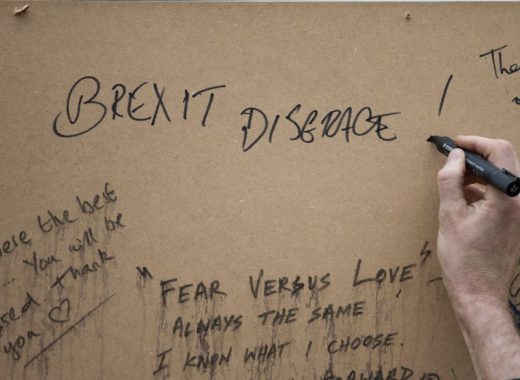 BREXIT DISGRACE !
The
were the best
... You will be
Thank
you ♡
"FEAR VERSUS LOVE"
ALWAYS THE SAME
I KNOW WHAT I CHOOSE.
FORWARD